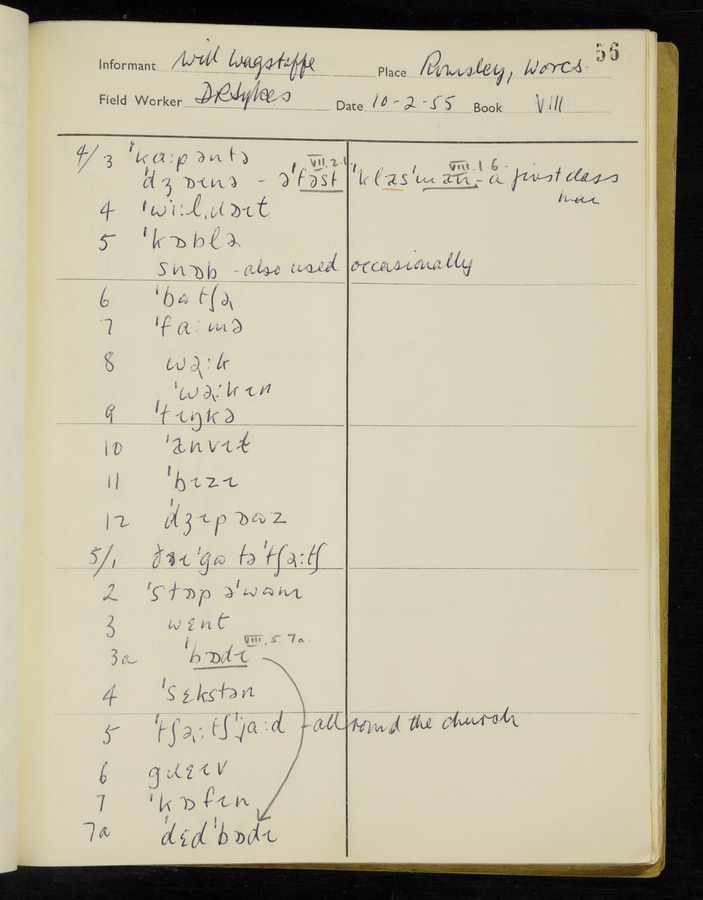 56
Informant Will Wagstaffe Place Romsley, Worcs.
Field Worker D R Sykes Date 10-2-55 Book VIII
4/3 'kɑ:pəntə
'dʒɒɪnə - ə'fəst 'klæs'mæn - a first class
man
VII.2.
VIII.1 6.
4 'wi:l,ɹaɪt
5 'kɒblə
snɒb - also used occasionally
6 'bʊtʃə
7 'fɑ:mə
8 wə:k
'wə:kɪn
9 'tɪŋkə
10 'ænvɪɫ
11 'bɪzɪ
12 'dʒɪpɒʊz
5/1 ðɛɪ'gʊ tə'tʃə:tʃ
2 'stɒp ə'wʊm
3 wɛnt
3a 'bɒdɪ VIII.5.7a.
4 'sɛkstən
5 'tʃə:tʃ'jɑ:d - all round the church
6 gɹɛɪv
7 'kɒfɪn
7a 'dɛd'bɒdɪ